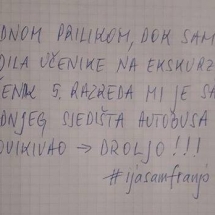 DNOM PRILIKOM, DOK SAM
DILA UČENIKE NA EKSKURZ
ČENIK 5. RAZREDA MI JE SA
DNJEG SJEDIŠTA AUTOBUSA
OVIKIVAO → DROLJO!!!
#ijasamfranjo